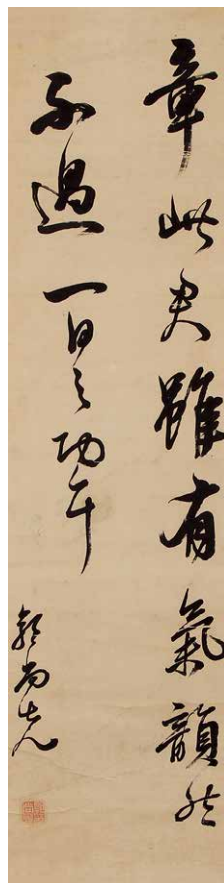 章此雖有氣韻然
不過一日之功耳
郭尚先